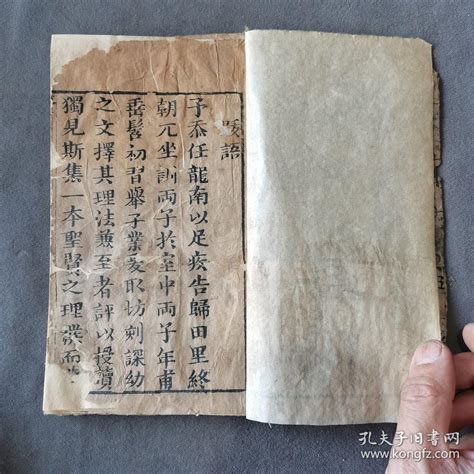 跋語
子忝任龍南以足疾告歸田里終
朝兀坐訓両子扵室中両子年甫
垂髫初習舉子業爰取坊刻課幼
之文擇其理法兼至者評以授讀
獨見斯集一本聖賢之理撰而
孔夫子旧书网
www.kongfz.com